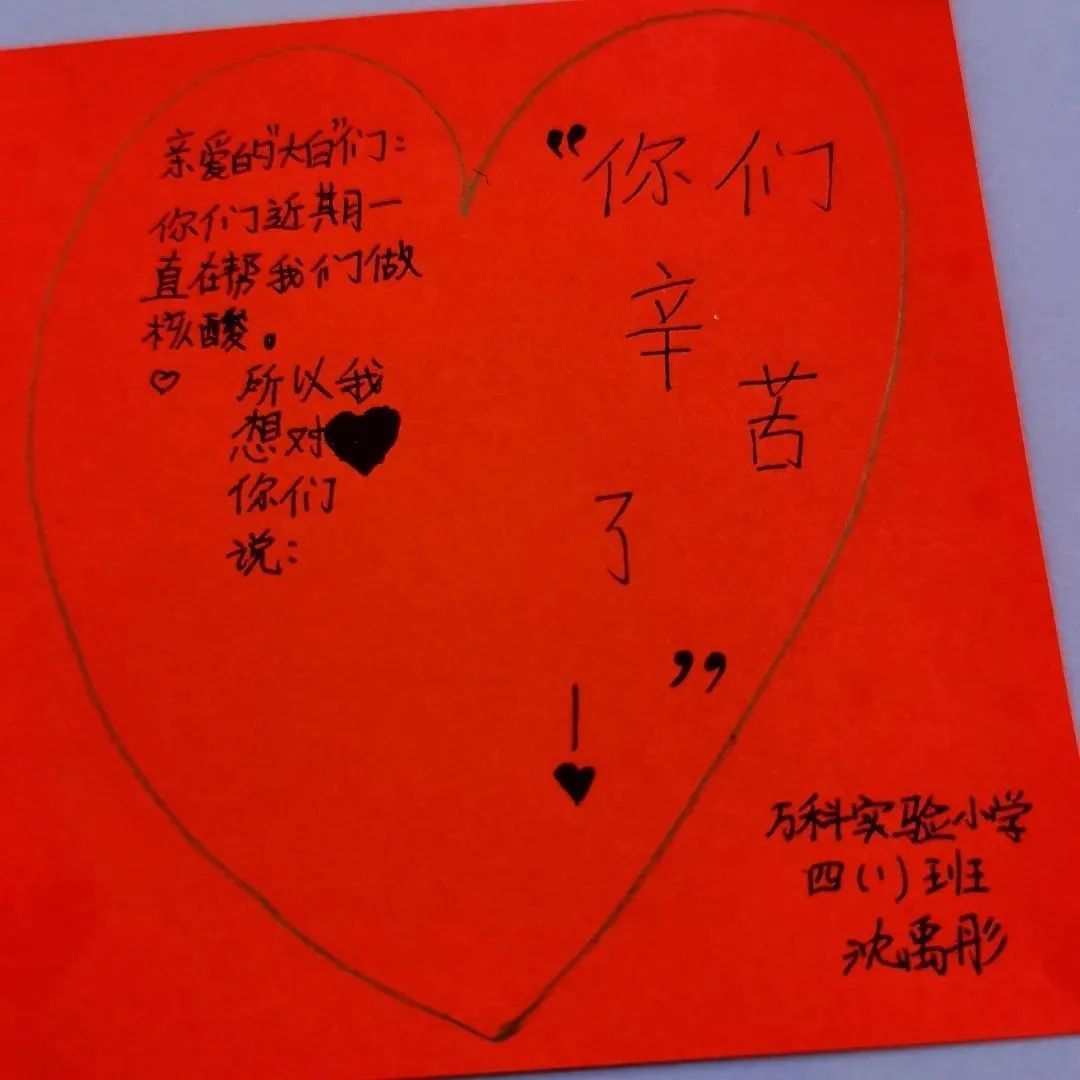 亲爱的“大白”们：
你们近期一
直在帮我们做
核酸。
所以我
想对
你们
说：
“你们
辛
苦
了
”
万科实验小学
四（1）班
沈禹彤